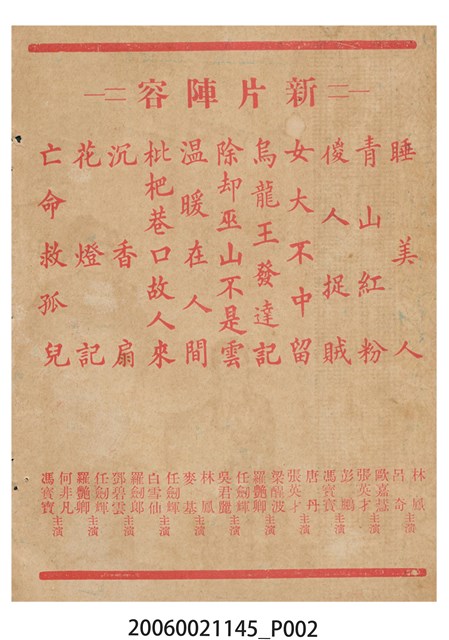 新片陣容
睡美人
青山紅粉
傻人捉賊
女大不中留
烏龍王發達記
除却巫山不是雲
溫暖在人間
枇杷巷口故人來
沉香扇
花燈記
亡命救孤兒
林鳳 呂奇 主演
歐嘉慧 張英才 主演
彭鵬 馮寶寶 主演
唐丹 張英才 主演
梁醒波 羅艷卿 主演
任劍輝 吳君麗 主演
林鳳 麥基 主演
任劍輝 白雪仙 主演
羅劍郎 鄧碧雲 主演
任劍輝 羅艷卿 主演
何非凡 馮寶寶 主演
20060021145_P002